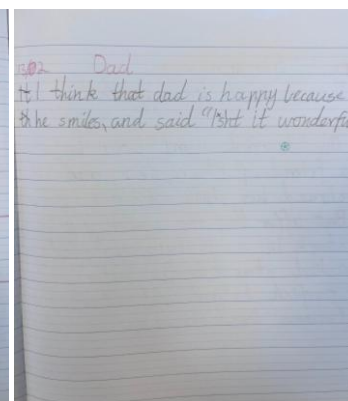 Dad
I think that dad is happy because
he smiles, and said "Isnt it